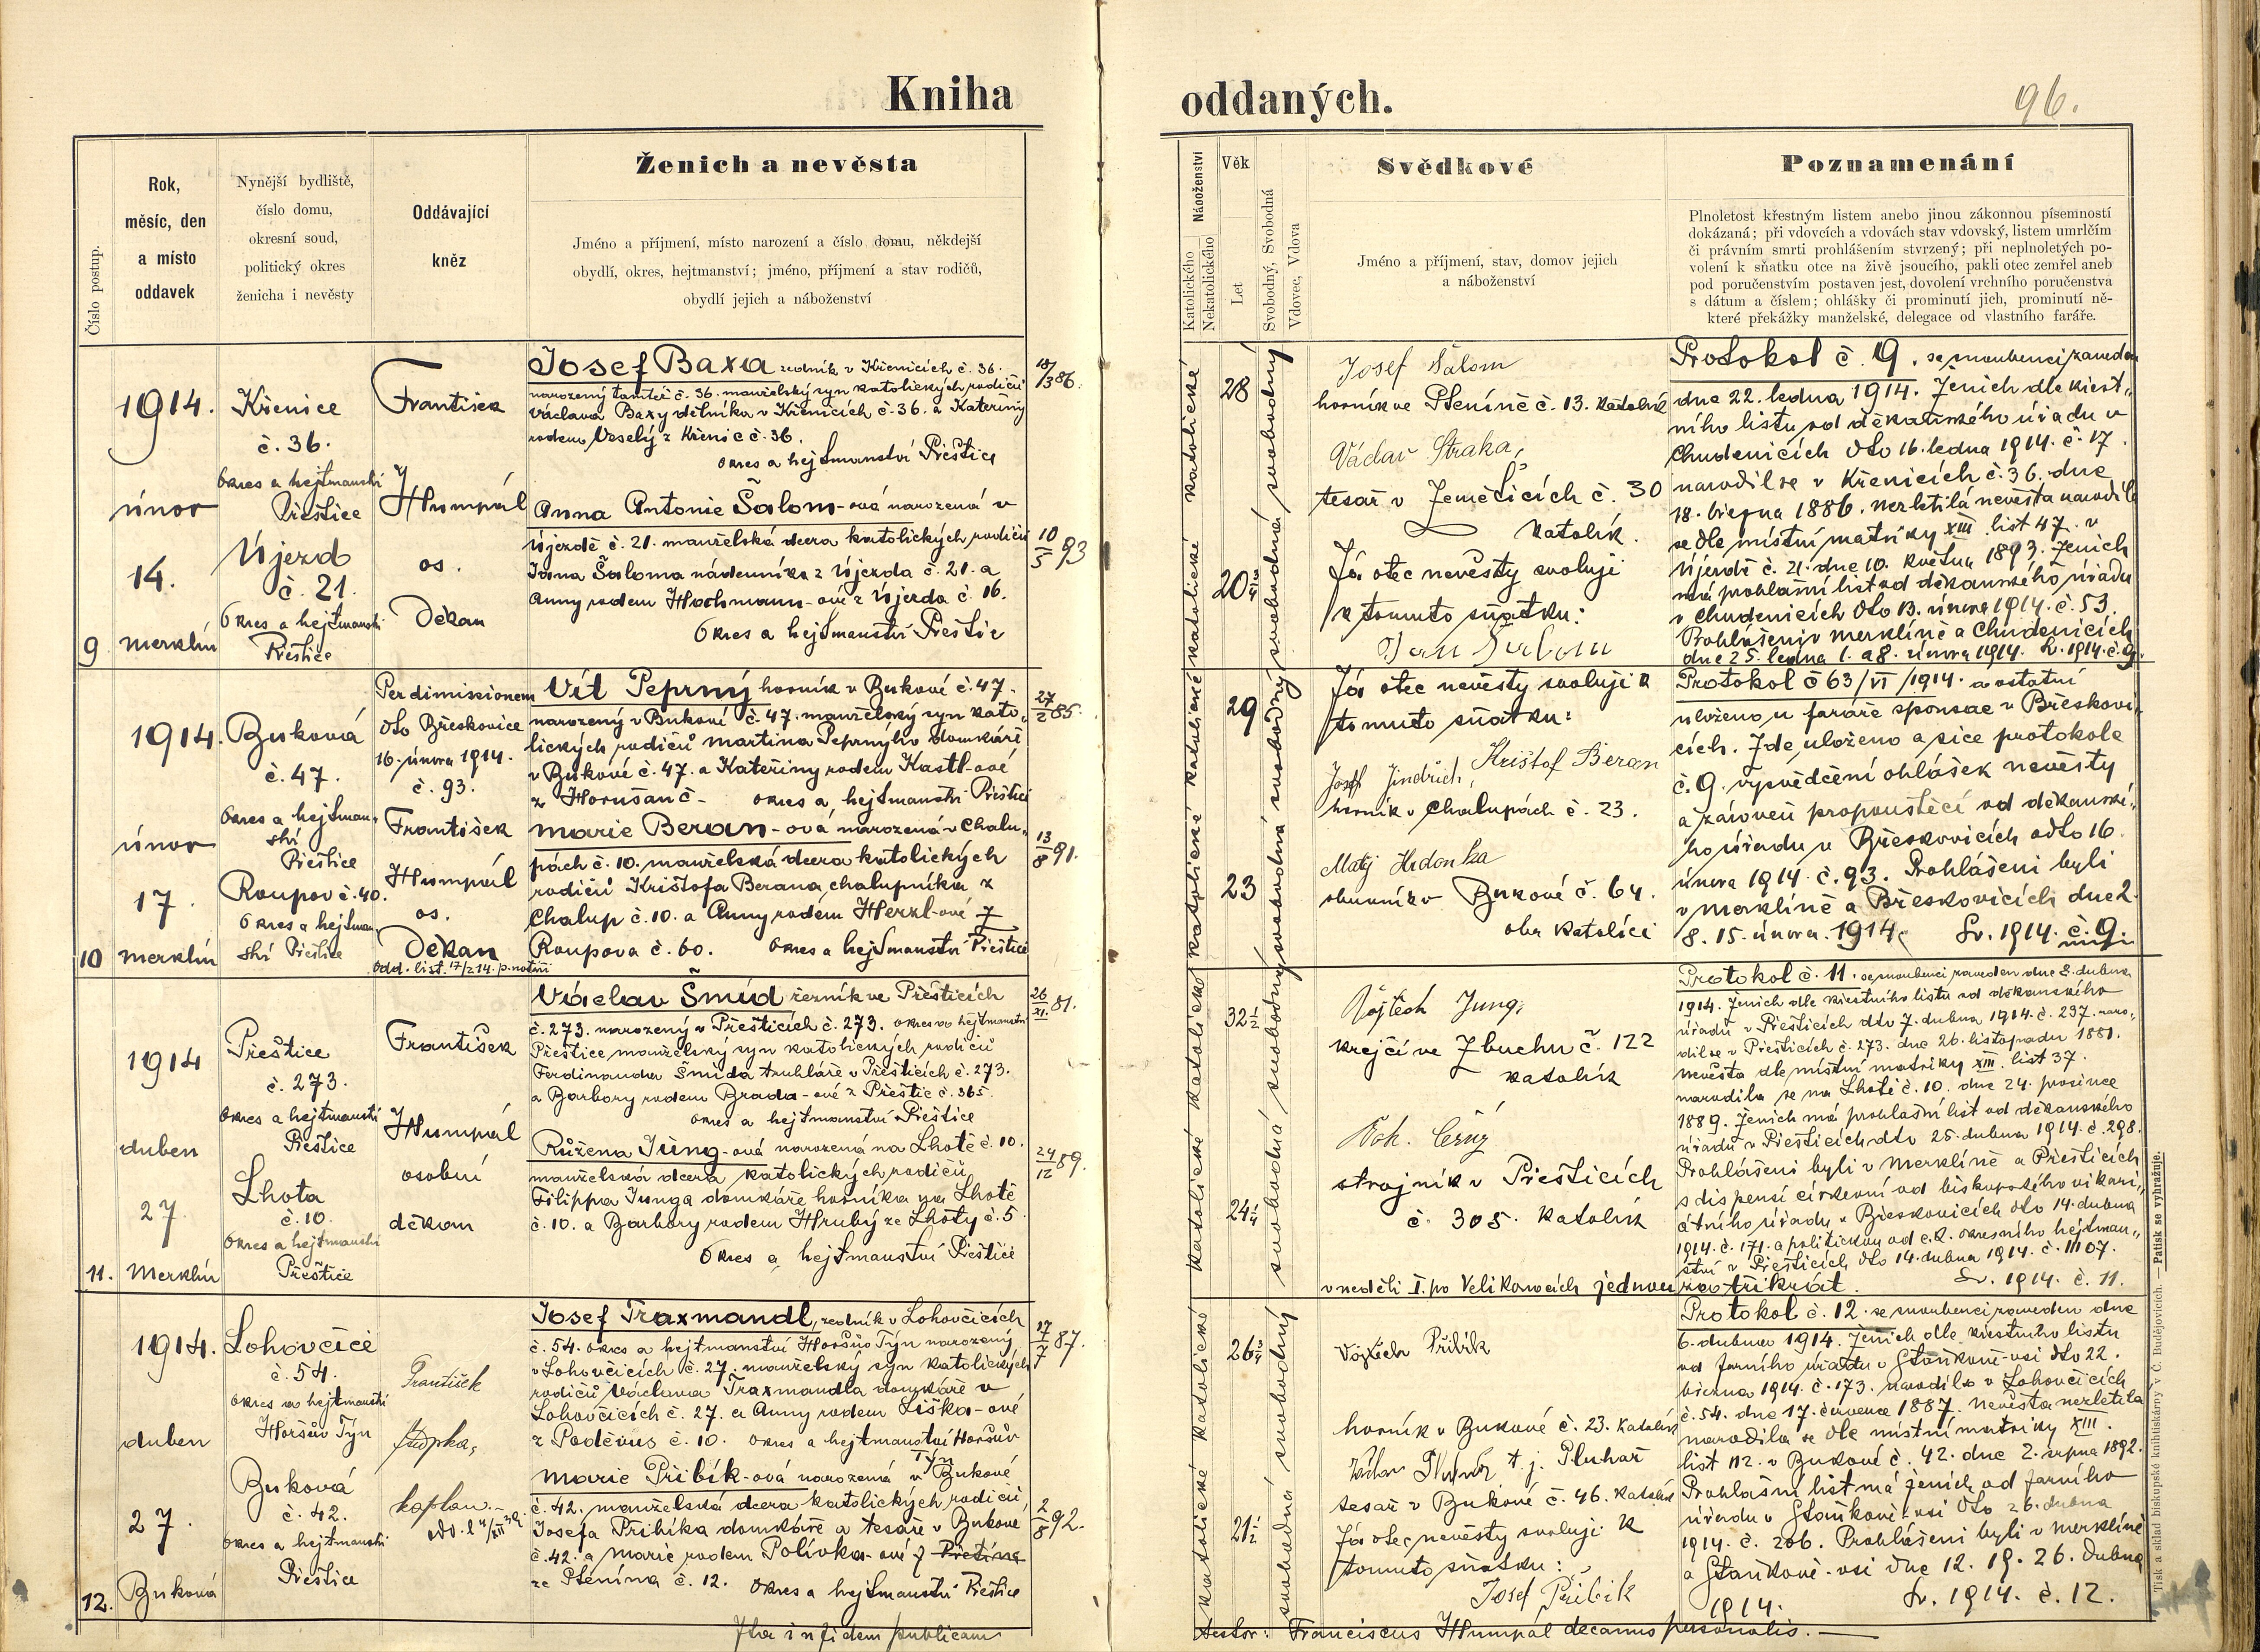 Kniha
oddaných.
96.
Číslo postup.
Rok,
měsíc, den
a místo
oddavek
Nynější bydliště,
číslo domu,
okresní soud,
politický okres
ženicha i nevěsty
Oddávající
kněz
Ženich a nevěsta
Jméno a příjmení, místo narození a číslo domu, někdejší
obydlí, okres, hejtmanství; jméno, příjmení a stav rodičů,
obydlí jejich a náboženství
Náboženství
Katolického
Nekatolického
Věk
Let
Svobodný, Svobodná
Vdovec, Vdova
Svědkové
Jméno a příjmení, stav, domov jejich
a náboženství
Poznamenání
Plnoletost křestným listem anebo jinou zákonnou písemností
dokázaná; při vdovcích a vdovách stav vdovský, listem umrlčím
či právním smrti prohlášením stvrzený; při neplnoletých po-
volení k sňatku otce na živě jsoucího, pakli otec zemřel aneb
pod poručenstvím postaven jest, dovolení vrchního poručenstva
s dátum a číslem; ohlášky či prominutí jich, prominutí ně-
které překážky manželské, delegace od vlastního faráře.
9
1914.
únor
14.
Merklín
Křenice
č. 36.
Okres a hejtmanství
Přeštice
Újezd
č. 21.
Okres a hejtmanství
Přeštice
František
Humpál
os.
Děkan
Josef Baxa zedník v Křenicích č. 36.
narozený tamtéž č. 36. manželský syn katolických rodičů
Václava Baxy dělníka v Křenicích č. 36. a Kateřiny
rodem Veselý z Křenic č. 36.
Okres a hejtmanství Přeštice
18/3 86.
Anna Antonie Šalom-ová narozená v
Újezdě č. 21. manželská dcera katolických rodičů
Jana Šaloma nádenníka z Újezda č. 21. a
Anny rodem Hochmann-ové z Újezda č. 16.
Okres a hejtmanství Přeštic
10/5 93
katolické
katolické
28
20
svobodný
svobodná
Josef Šalom
horník ve Pteníně č. 13. Katolík
Václav Straka,
tesař v Jeměticích č. 30
Katolík.
Já otec nevěsty svoluji
k tomuto sňatku:
Protokol č. 9. se snoubenci zaveden
dne 22. ledna 1914. Ženich dle křest-
ního listu od děkanského úřadu v
Chudenicích dto 16. ledna 1914. č. 17
narodil se v Křenicích č. 36. dne
18. března 1886. nezletilá nevěsta narodila
se dle místní matriky XIII. list 47. v
Újezdě č. 21. dne 10. května 1893. Ženich
má prohlašní list od děkanského úřadu
v Chudenicích dto 13. února 1914. č. 53.
Prohlášeni v Merklíně a Chudenicích
dne 25. ledna 1. a 8. února 1914. Sv. 1914. č. 9.
10
1914.
únor
17.
Merklín
Buková
č. 47.
Okres a hejtman-
ství
Přeštice
Roupov č. 40.
Okres a hejtman-
ství Přeštice
Per dimissionem
dto Břeskovice
16. února 1914.
č. 93.
František
Humpál
os.
Děkan
Vít Peprný horník v Bukové č. 47.
narozený v Bukové č. 47. manželský syn kato-
lických rodičů Martina Peprnýho domkáře
v Bukové č. 47. a Kateřiny rodem Kastl-ové
z Horušan č - okres a hejtmanství Přeštice
27/2 85.
Marie Beran-ová narozená v Chalu-
pách č. 10. manželská dcera katolických
rodičů Krištofa Berana, chalupníka z
Chalup č. 10. a Anny rodem Herzl-ové z
Roupova č. 60. Okres a hejtmanství Přeštice
13/8 91.
katolické
katolické
29
23
svobodný
svobodná
Já otec nevěsty svoluji k
tomuto sňatku:
Krištof Beran
Josef Jindřich,
horník v Chalupách č. 23.
Matěj Hrdonka
v Bukové č. 64.
oba katolíci
Protokol č 63/VI/1914. a ostatní
uloženo u faráře sponsae v Břeskovi-
cích. Zde, uloženo a sice protokole
č. 9. vysvědčení ohlášek nevěsty
a zároveň propouštěcí od děkanské-
ho úřadu v Břeskovicích odto 16.
února 1914. č. 93. Prohlášeni byli
v Merklíně a Břeskovicích dne 2.
8. 15. února. 1914. Sv. 1914. č. 9.
11.
1914
duben
27
Merklín
Přeštice
č. 273.
Okres a hejtmanství
Přeštice
Lhota
č. 10.
Okres a hejtmanství
Přeštice
František
Humpál
osobní
děkan
Václav Šmíd řezník ve Přešticích
č. 273. narozený v Přešticích č. 273. okres a hejtmanství
Přeštice manželský syn katolických rodičů
Ferdinanda Šmída truhláře v Přešticích č. 273.
a Barbory rodem Brada-ové z Přeštic č. 365.
okres a hejtmanství Přeštice
26/XI. 81.
Růžena Jung-ová narozená na Lhotě č. 10.
manželská dcera katolických rodičů
Filippa Junga domkáře horníka na Lhotě
č. 10. a Barbory rodem Hrubý ze Lhoty č. 5
Okres a hejtmanství Přeštice
24/12 89.
katolické
katolické
32 1/2
24 1/4
svobodný
svobodná
Vojtěch Jung,
krejčí ve Zbuchu č. 122
katolík
Voh. Černý
strojník v Přešticích
č. 305. katolík
Protokol č. 11. se snoubenci zaveden dne 8. dubna
1914. Ženich dle křestního listu od děkanského
úřadu v Přešticích dto 7. dubna 1914. č. 237. naro-
dil se v Přešticích č. 273. dne 26. listopadu 1881.
Nevěsta dle místní matriky XIII. list 37.
narodila se na Lhotě č. 10. dne 24. prosince
1889. Ženich má prohlašní list od děkanského
úřadu v Přešticích dto 25. dubna 1914. č. 298.
Prohlášeni byli v Merklíně a Přešticích
s dispensí církevní od biskupského vikari-
átního úřadu v Břeskovicích dto 14. dubna
1914. č. 171. a politickou od c. k. okresního hejtman-
ství v Přešticích dto 14. dubna 1914. č. 11107.
v neděli I. po Velikonocích jednou za třikrát. Sv. 1914. č. 11.
12.
1914.
duben
27.
Buková
Lohovčice
č. 54.
okres a hejtmanství
Horšův Týn
Buková
č. 42.
okres a hejtmanství
Přeštice
František
kaplan.
Josef Traxmandl, zedník v Lohovčicích
č. 54. okres a hejtmanství Horšův Týn narozený
v Lohovčicích č. 27. manželský syn katolických
rodičů Václava Traxmandla domkáře v
Lohovčicích č. 27. a Anny rodem Liška-ové
z Poděvus č. 10. okres a hejtmanství Horšův
Týn
17/7 87.
Marie Přibík-ová narozená v Bukové
č. 42. manželská dcera katolických rodičů,
Josefa Přibíka domkáře a tesaře v Bukové
č. 42. a Marie rodem Polívka-ové z
ze Ptenína č. 12. okres a hejtmanství Přeštice
2/8 92.
katolické
katolické
26 3/4
21 1/2
svobodný
svobodná
Vojtěch Přibík
horník v Bukové č. 23. katolík
t. j. Pluhař
tesař v Bukové č. 46. katolík
Já otec nevěsty svoluji k
tomuto sňatku:
Josef Přibík
Protokol č. 12. se snoubenci zaveden dne
6. dubna 1914. Ženich dle křestního listu
od farního úřadu v Staňkově-vsi dto 22.
března 1914. č. 173. narodil se v Lohovčicích
č. 54. dne 17. července 1887. Nevěsta nezletilá
narodila se dle místní matriky XIII.
list 112. v Bukové č. 42. dne 2. srpna 1892.
Prohlašní list má ženich od farního
úřadu v Staňkově-vsi dto 26. dubna
1914. č. 206. Prohlášeni byli v Merklíně
a Staňkově-vsi dne 12. 19. 26. dubna
1914. Sv. 1914. č. 12.
Ita in fidem publicam
testor: Franciscus Humpál decanus personalis.
Tisk a sklad biskupské knihtiskárny v Č. Budějovicích. — Patisk se vyhražuje.